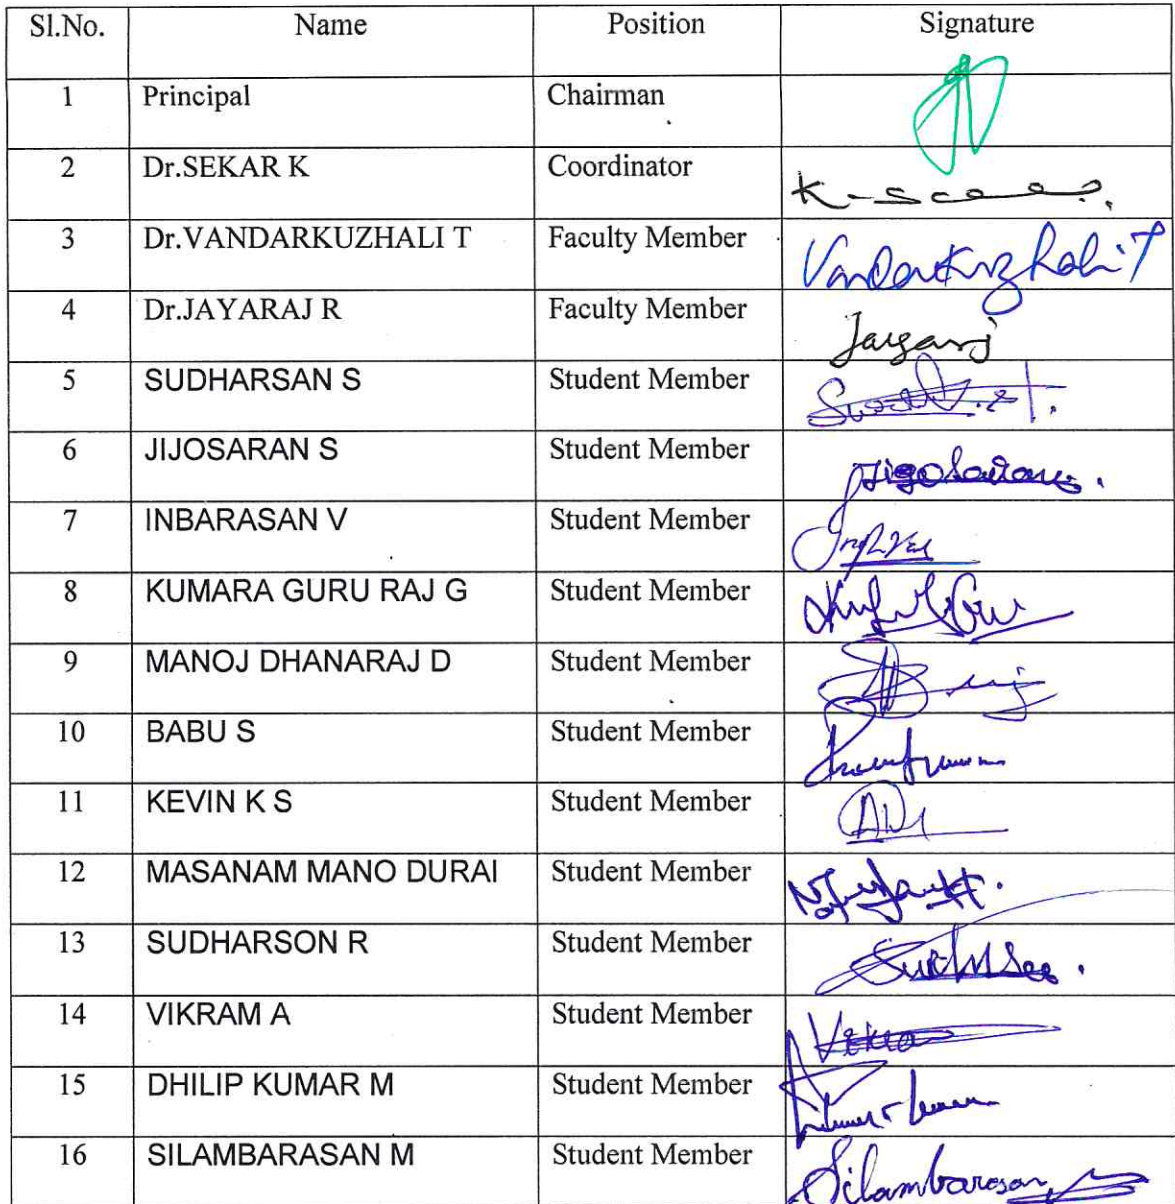 Sl.No. Name Position Signature
1 Principal Chairman
2 Dr.SEKAR K Coordinator
3 Dr.VANDARKUZHALI T Faculty Member Vandarkuzhali T
4 Dr.JAYARAJ R Faculty Member Jayaraj
5 SUDHARSAN S Student Member
6 JIJOSARAN S Student Member
7 INBARASAN V Student Member
8 KUMARA GURU RAJ G Student Member
9 MANOJ DHANARAJ D Student Member
10 BABU S Student Member
11 KEVIN K S Student Member
12 MASANAM MANO DURAI Student Member
13 SUDHARSON R Student Member
14 VIKRAM A Student Member
15 DHILIP KUMAR M Student Member
16 SILAMBARASAN M Student Member Silambarasan